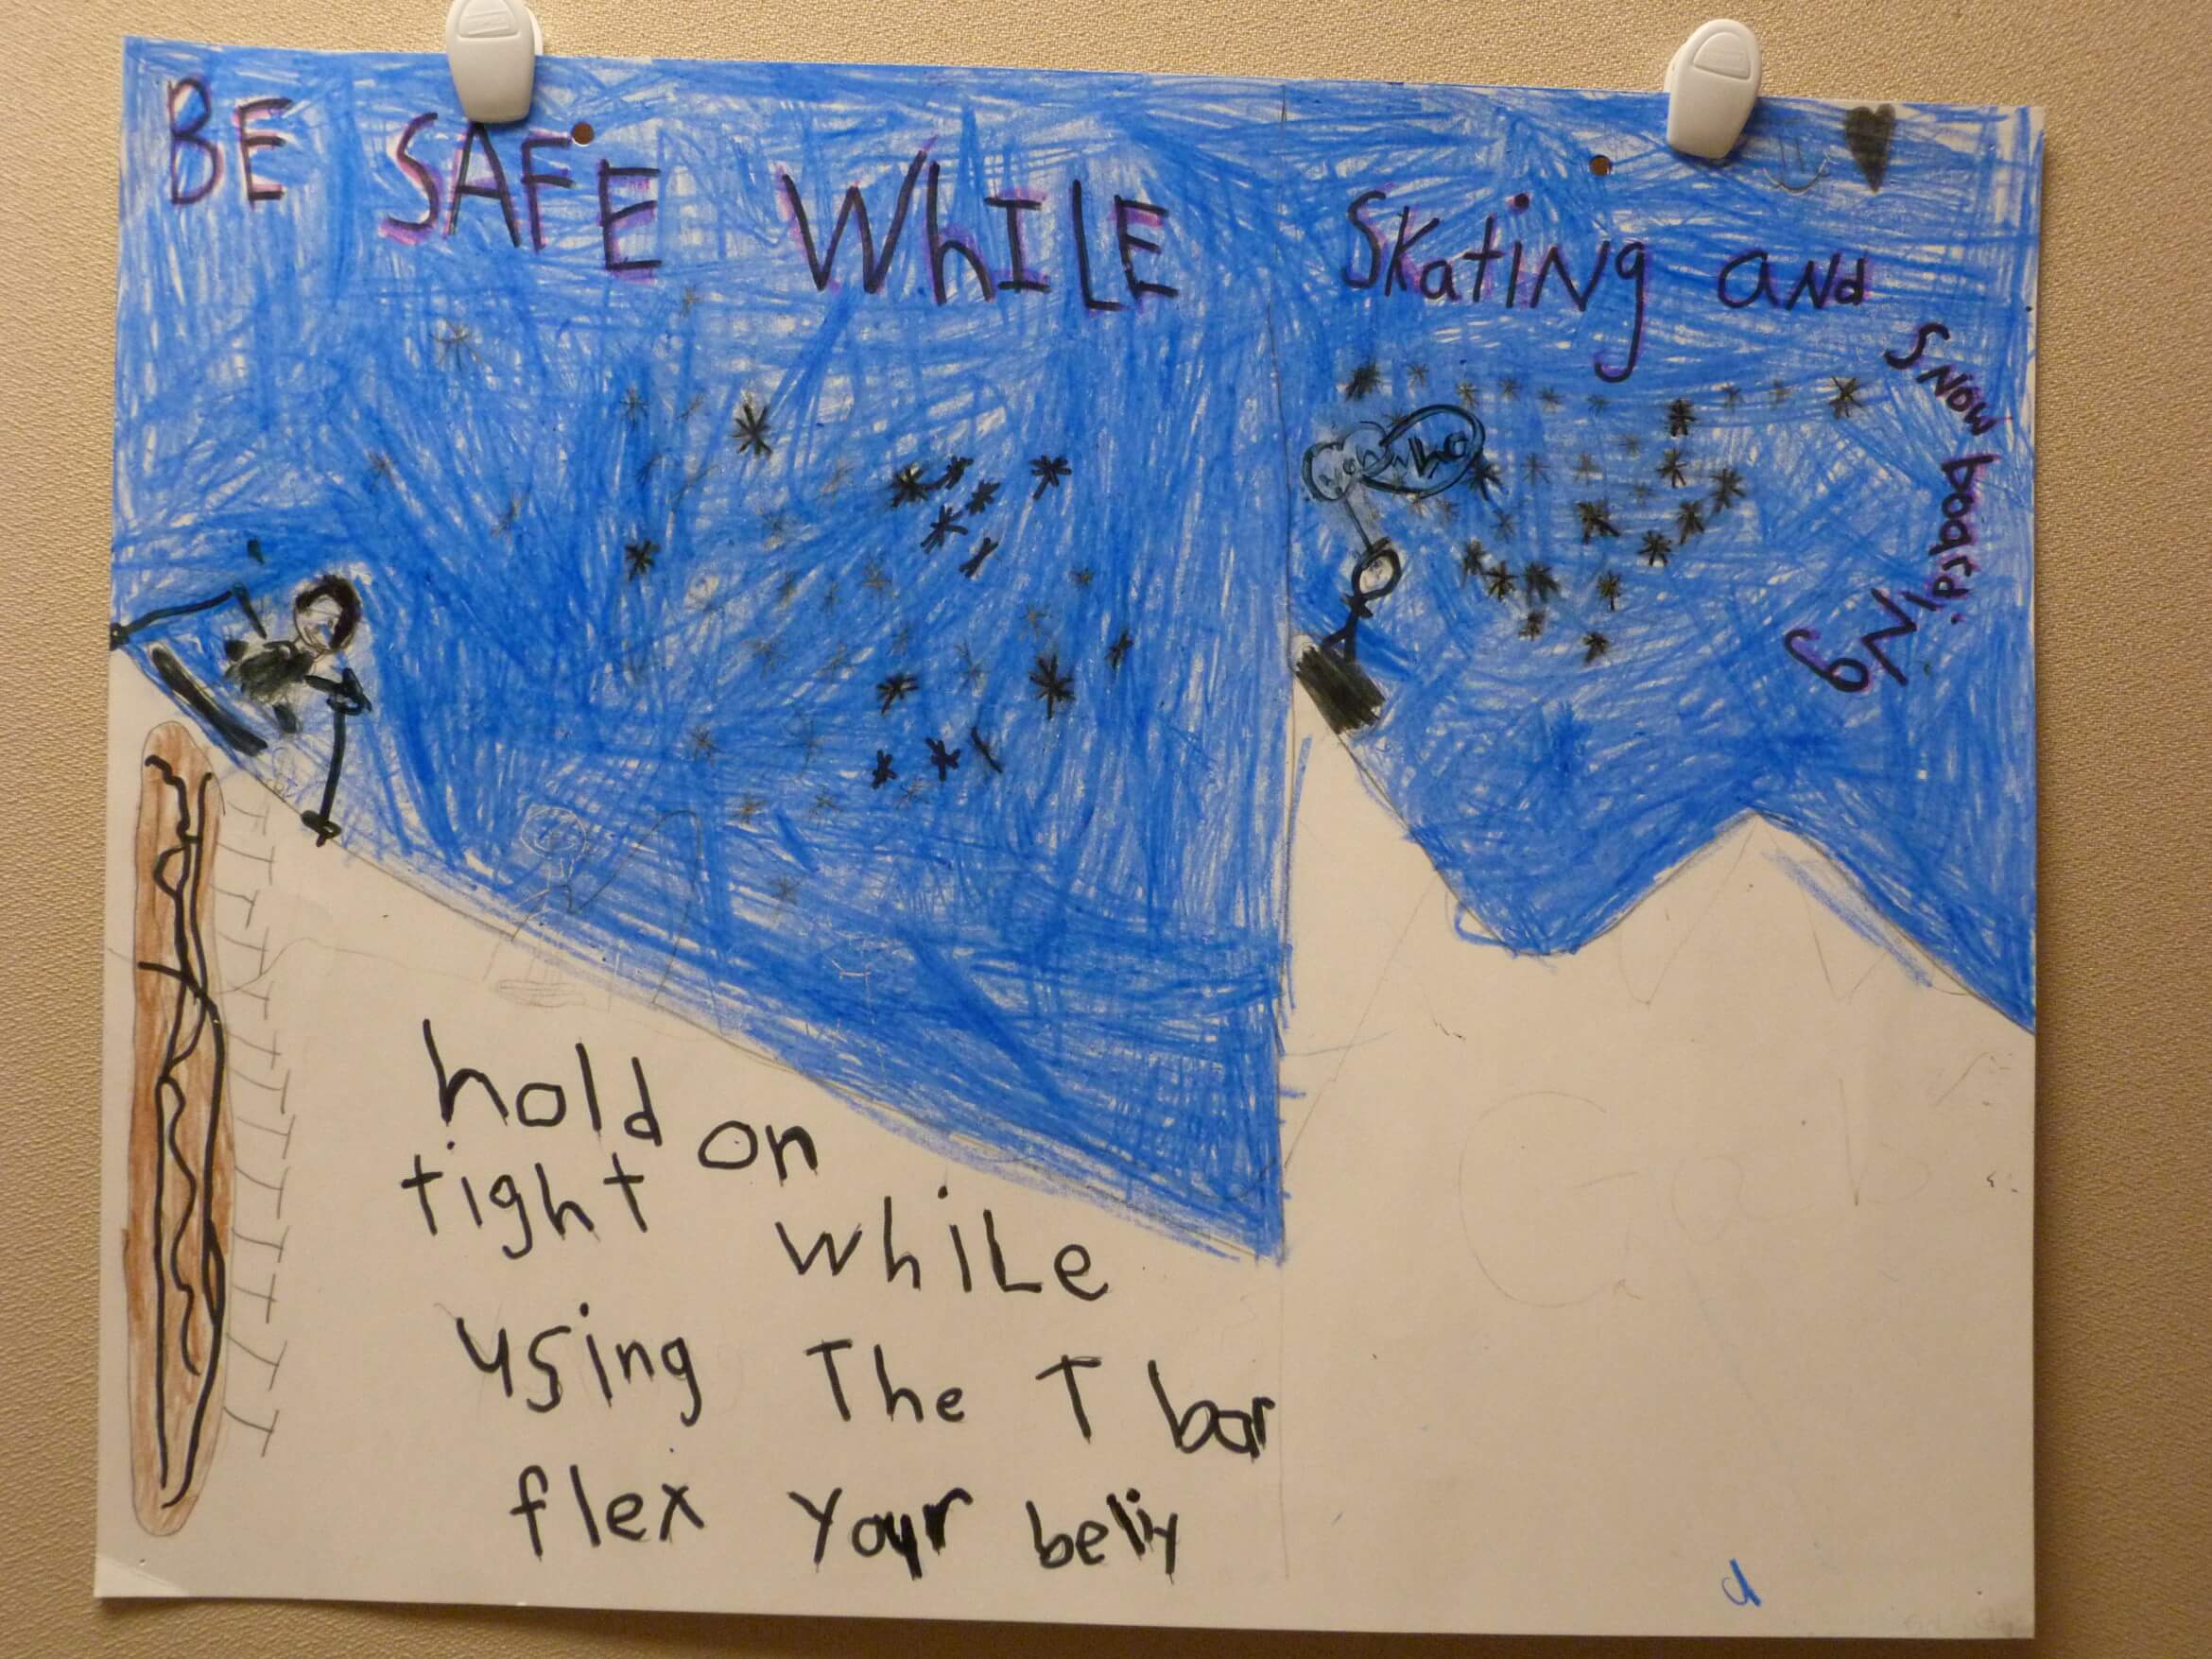 BE SAFE WhILE Skating and
SNOW boardiNg
hold on
tight while
using The T bar
flex your belly
Gab